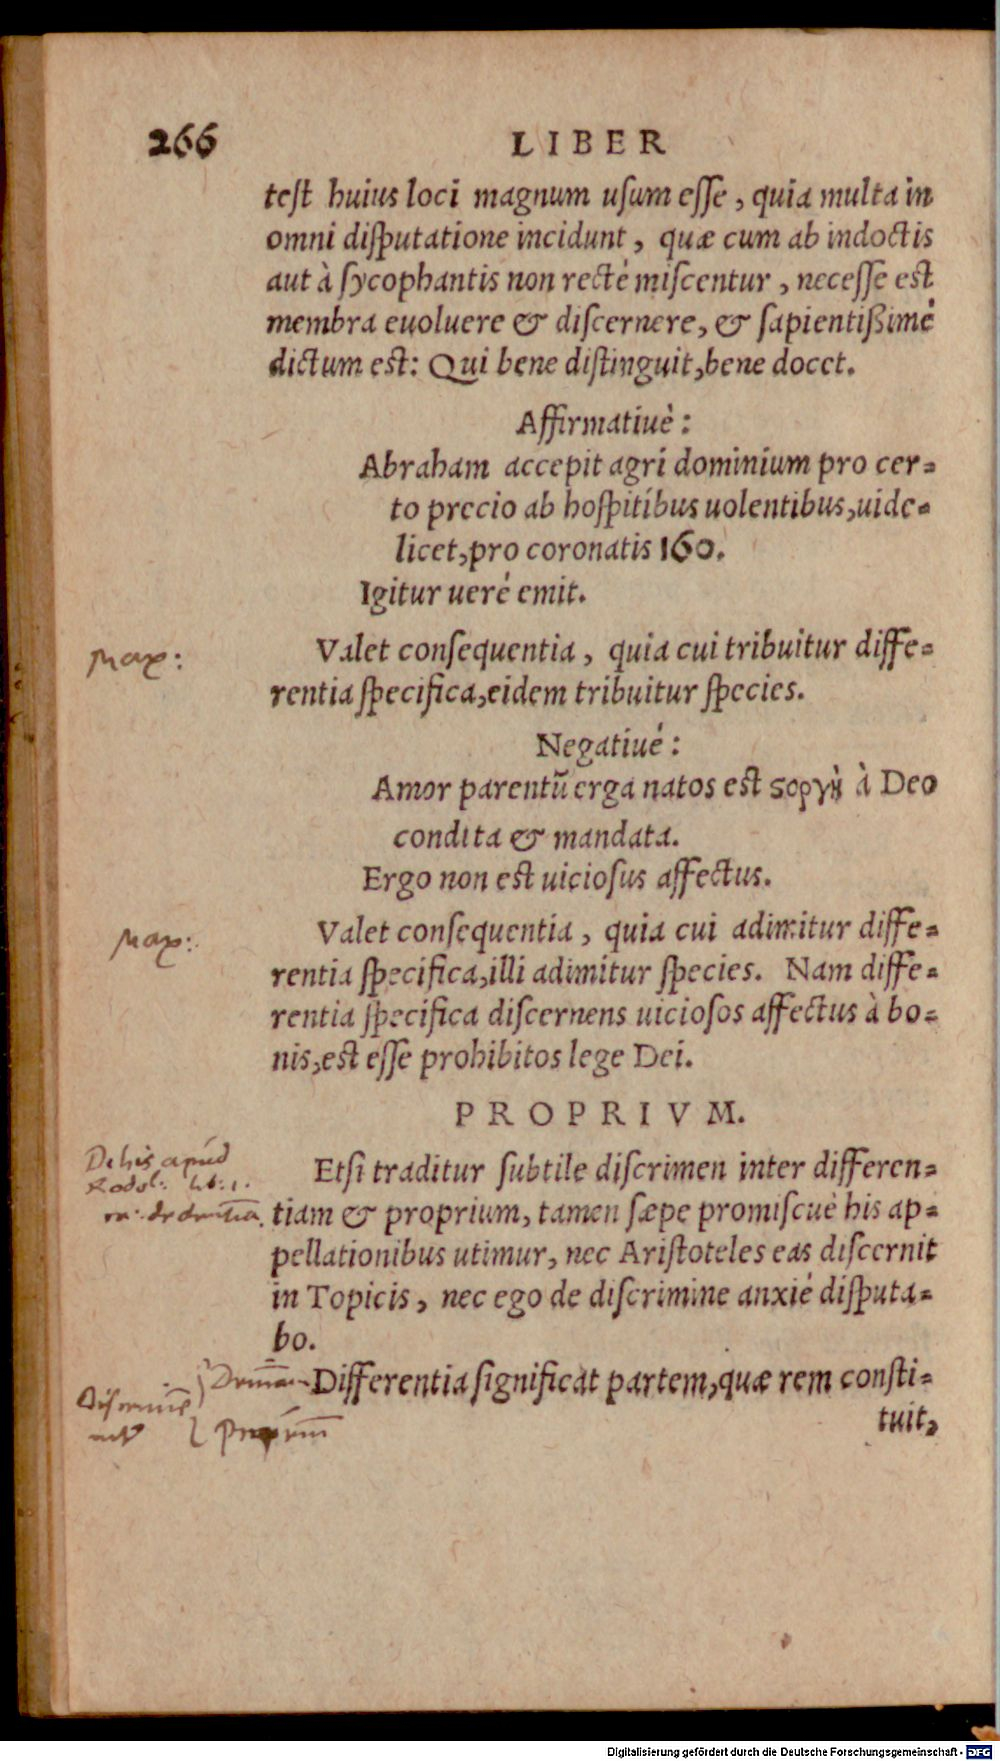 266 LIBER
test huius loci magnum usum esse, quia multa in
omni disputatione incidunt, quæ cum ab indoctis
aut à sycophantis non recté miscentur, necesse est
membra euoluere & discernere, & sapientißimé
dictum est: Qui bene distinguit, bene docet.
Affirmatiuè:
Abraham accepit agri dominium pro cer-
to precio ab hospitibus uolentibus, uide-
licet, pro coronatis 160.
Igitur ueré emit.
Max:
Valet consequentia, quia cui tribuitur diffe-
rentia specifica, eidem tribuitur species.
Negatiué:
Amor parentũ erga natos est ϛοργὴ à Deo
condita & mandata.
Ergo non est uiciosus affectus.
Max:
Valet consequentia, quia cui adimitur diffe-
rentia specifica, illi adimitur species. Nam diffe-
rentia specifica discernens uiciosos affectus à bo-
nis, est esse prohibitos lege Dei.
PROPRIVM.
De his apud
Rodol: lib: 1.
Etsi traditur subtile discrimen inter differen-
tiam & proprium, tamen sæpe promiscuè his ap-
pellationibus utimur, nec Aristoteles eas discernit
in Topicis, nec ego de discrimine anxié disputa-
bo.
Differentia significat partem, quæ rem consti-
tuit,
Digitalisierung gefördert durch die Deutsche Forschungsgemeinschaft - DFG